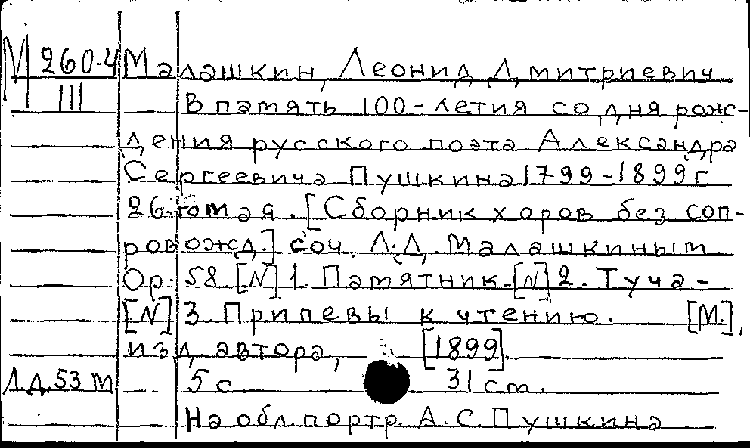 М 260-4 Малашкин, Леонид Дмитриевич
III В память 100-летия со дня рож-
дения русского поэта Александра
Сергеевича Пушкина 1799-1899 г
26го мая. [Сборник хоров без соп-
ровожд.] соч. Л.Д. Малашкиным
Ор. 58 [N] 1. Памятник. [N] 2. Туча-
[N] 3 Припевы к чтению. [М.],
изд. автора, [1899].
Л.Д.53 м 5 с 31 см.
На обл. портр. А.С. Пушкина